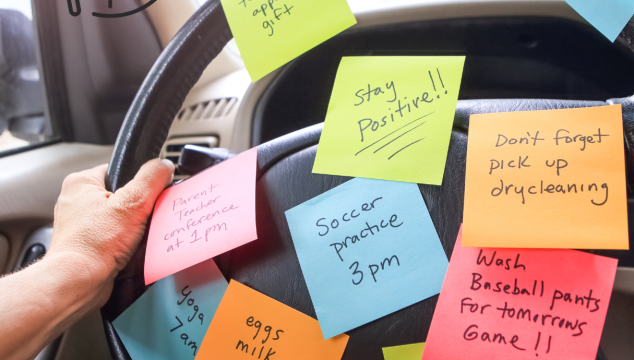 gift
Stay
Positive!!
Don't forget
pick up
drycleaning
Parent
Teacher
conference
at 1pm
Soccer
practice
3pm
Wash
Baseball pants
for tomorrows
Game!!
yoga
7am
eggs
milk